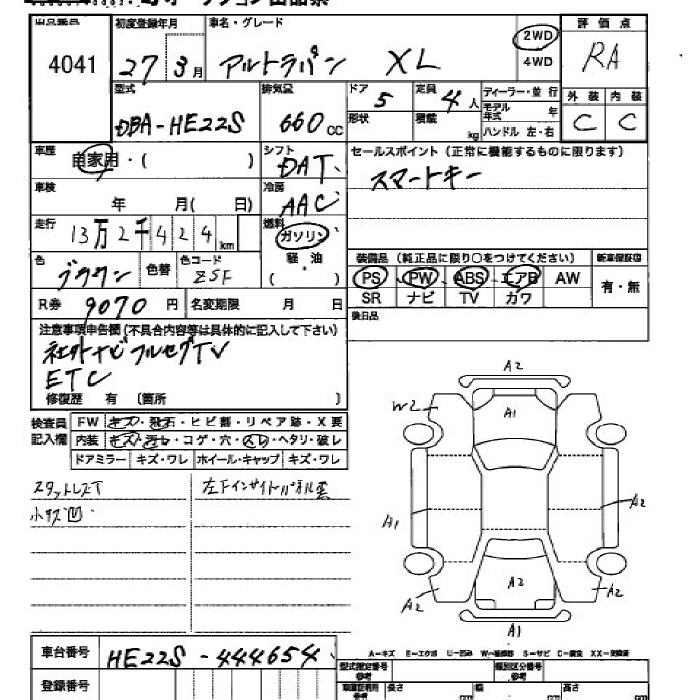 出品番号 初度登録年月 車名・グレード 評価点
4041 27 3月 アルトラパン XL 2WD 4WD RA
型式 排気量 ドア 定員 ディーラー・並行 外装 内装
DBA-HE22S 660cc 5 4人 モデル年式 年 C C
形状 積載 kg ハンドル 左・右
車歴 シフト セールスポイント(正常に機能するものに限ります)
自家用・( ) DAT スマートキー
車検 冷房
年 月( 日) AAC
走行 燃料
13万2千424km ガソリン
色 色替 色コード 軽油 装備品(純正品に限り○をつけてください) 新車保証書
ブラウン ZSF ( ) PS PW ABS エアB AW 有・無
SR ナビ TV カワ
R券 9070円 名変期限 月 日 後日品
注意事項申告欄(不具合内容等は具体的に記入して下さい)
社外ナビ フルセグTV
ETC
修復歴 有 〔箇所 〕
検査員記入欄 FW キズ・飛石・ヒビ割・リペア跡・X要
内装 キズ・汚レ・コゲ・穴・スレ・ヘタリ・破レ
ドアミラー キズ・ワレ ホイール・キャップ キズ・ワレ
スタットレスT 左下インサイドパネル凹
小キズ凹
A2
W2 A1
A1 A2
A2 A2 A2
A1
A-キズ E-エクボ U-凹み W-補修跡 S-サビ C-腐食 XX-交換済
車台番号 HE22S-444654
型式指定番号 類別区分番号
登録番号 長さ 幅 高さ